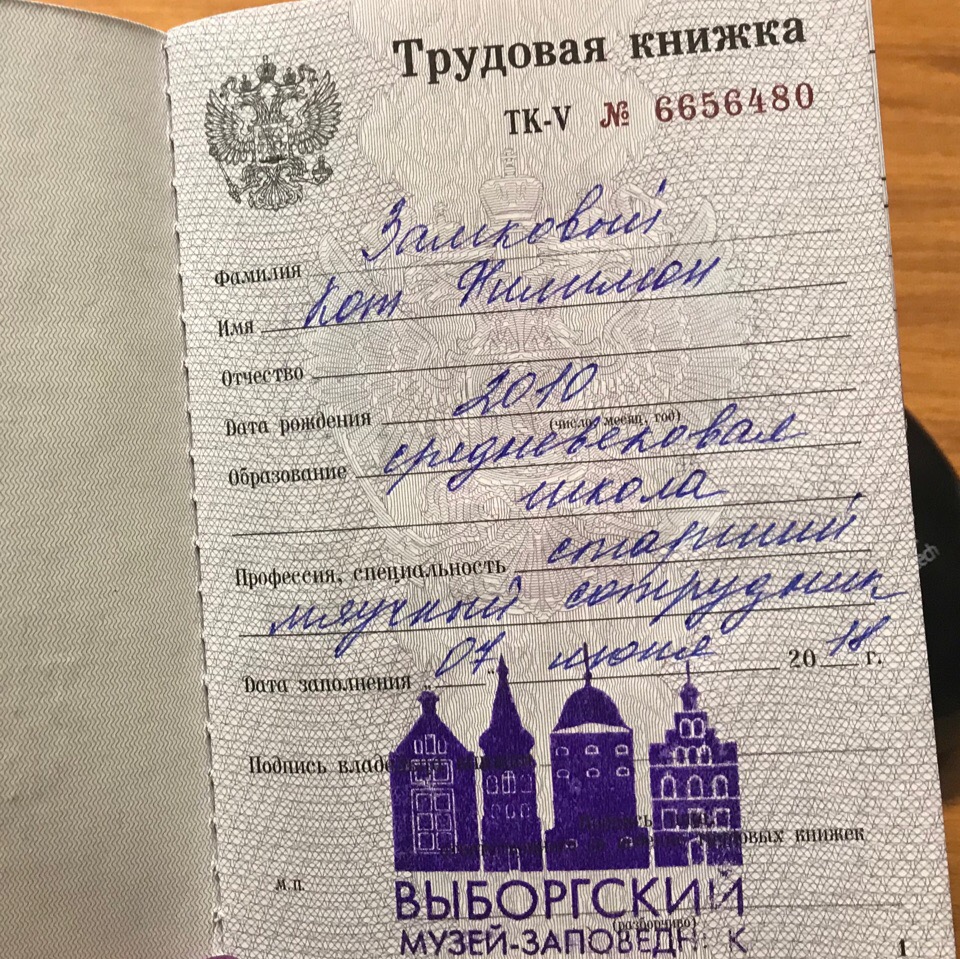 Трудовая книжка
ТК-V № 6656480
Фамилия Замковый
Имя Кот Филимон
Отчество
Дата рождения 2010
(число, месяц, год)
Образование средневековая
школа
Профессия, специальность старший
мяучный сотрудник
Дата заполнения „07” июня 2018 г.
Подпись
трудовых книжек
М.П.
ВЫБОРГСКИЙ
(разборчиво)
МУЗЕЙ-ЗАПОВЕДН К
1